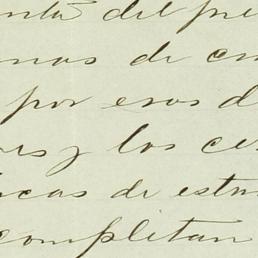 enta del pre
mas de en
por esos d
es y los ce
icas de esta
completan